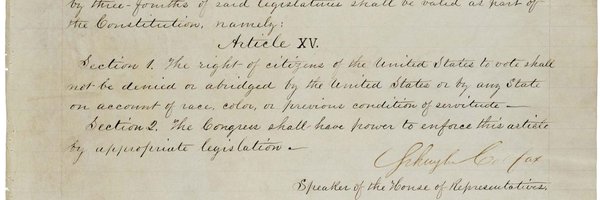 by three-fourths of said legislatures shall be valid as part of
the Constitution, namely:
Article XV.
Section 1. The right of citizens of the United States to vote shall
not be denied or abridged by the United States or by any State
on account of race, color, or previous condition of servitude –
Section 2. The Congress shall have power to enforce this article
by appropriate legislation –
Schuyler Colfax
Speaker of the House of Representatives.